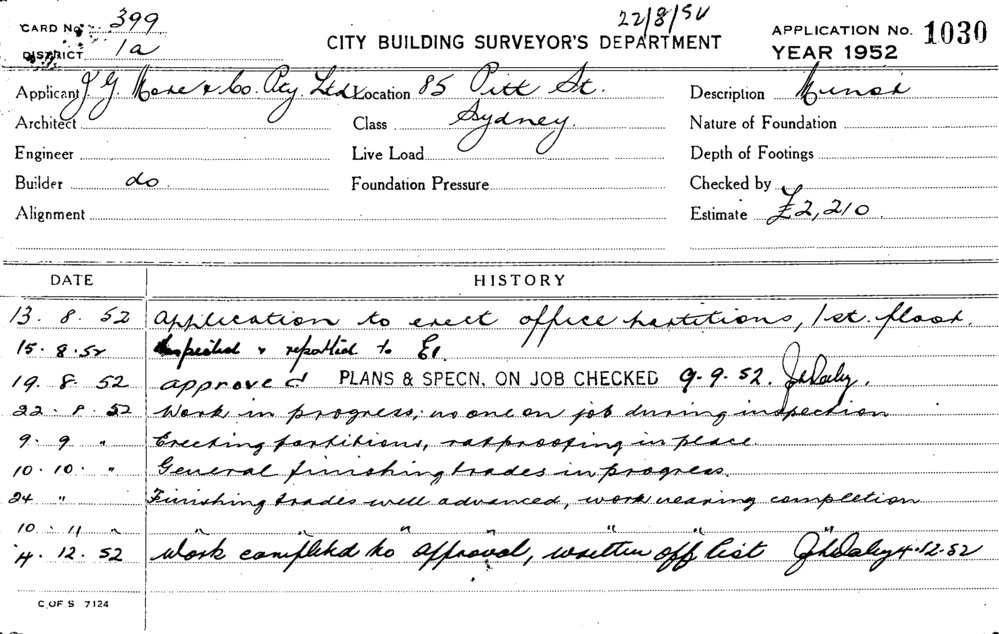 CARD No. 399
22/8/52
CITY BUILDING SURVEYOR'S DEPARTMENT
APPLICATION No. 1030
DISTRICT 1a
YEAR 1952
Applicant J. G. & Co. Pty. Ltd. Location 85 Pitt St. Description Minor
Architect Class Sydney. Nature of Foundation
Engineer Live Load Depth of Footings
Builder do Foundation Pressure Checked by
Alignment Estimate £2,210
DATE HISTORY
13. 8. 52 Application to erect office partitions, 1st. floor.
15. 8. 52 Inspected & reported to
19. 8. 52 approved PLANS & SPECN. ON JOB CHECKED 9. 9. 52. JhDaley.
22. 8. 52 Work in progress; no one on job during inspection
9. 9 " Erecting partitions, ratproofing in place.
10. 10. " General finishing trades in progress.
24 " Finishing trades well advanced, work nearing completion
10. 11 " " " " " "
4. 12. 52 Work completed to approval, written off list JhDaley 4.12.52
C OF S 7124